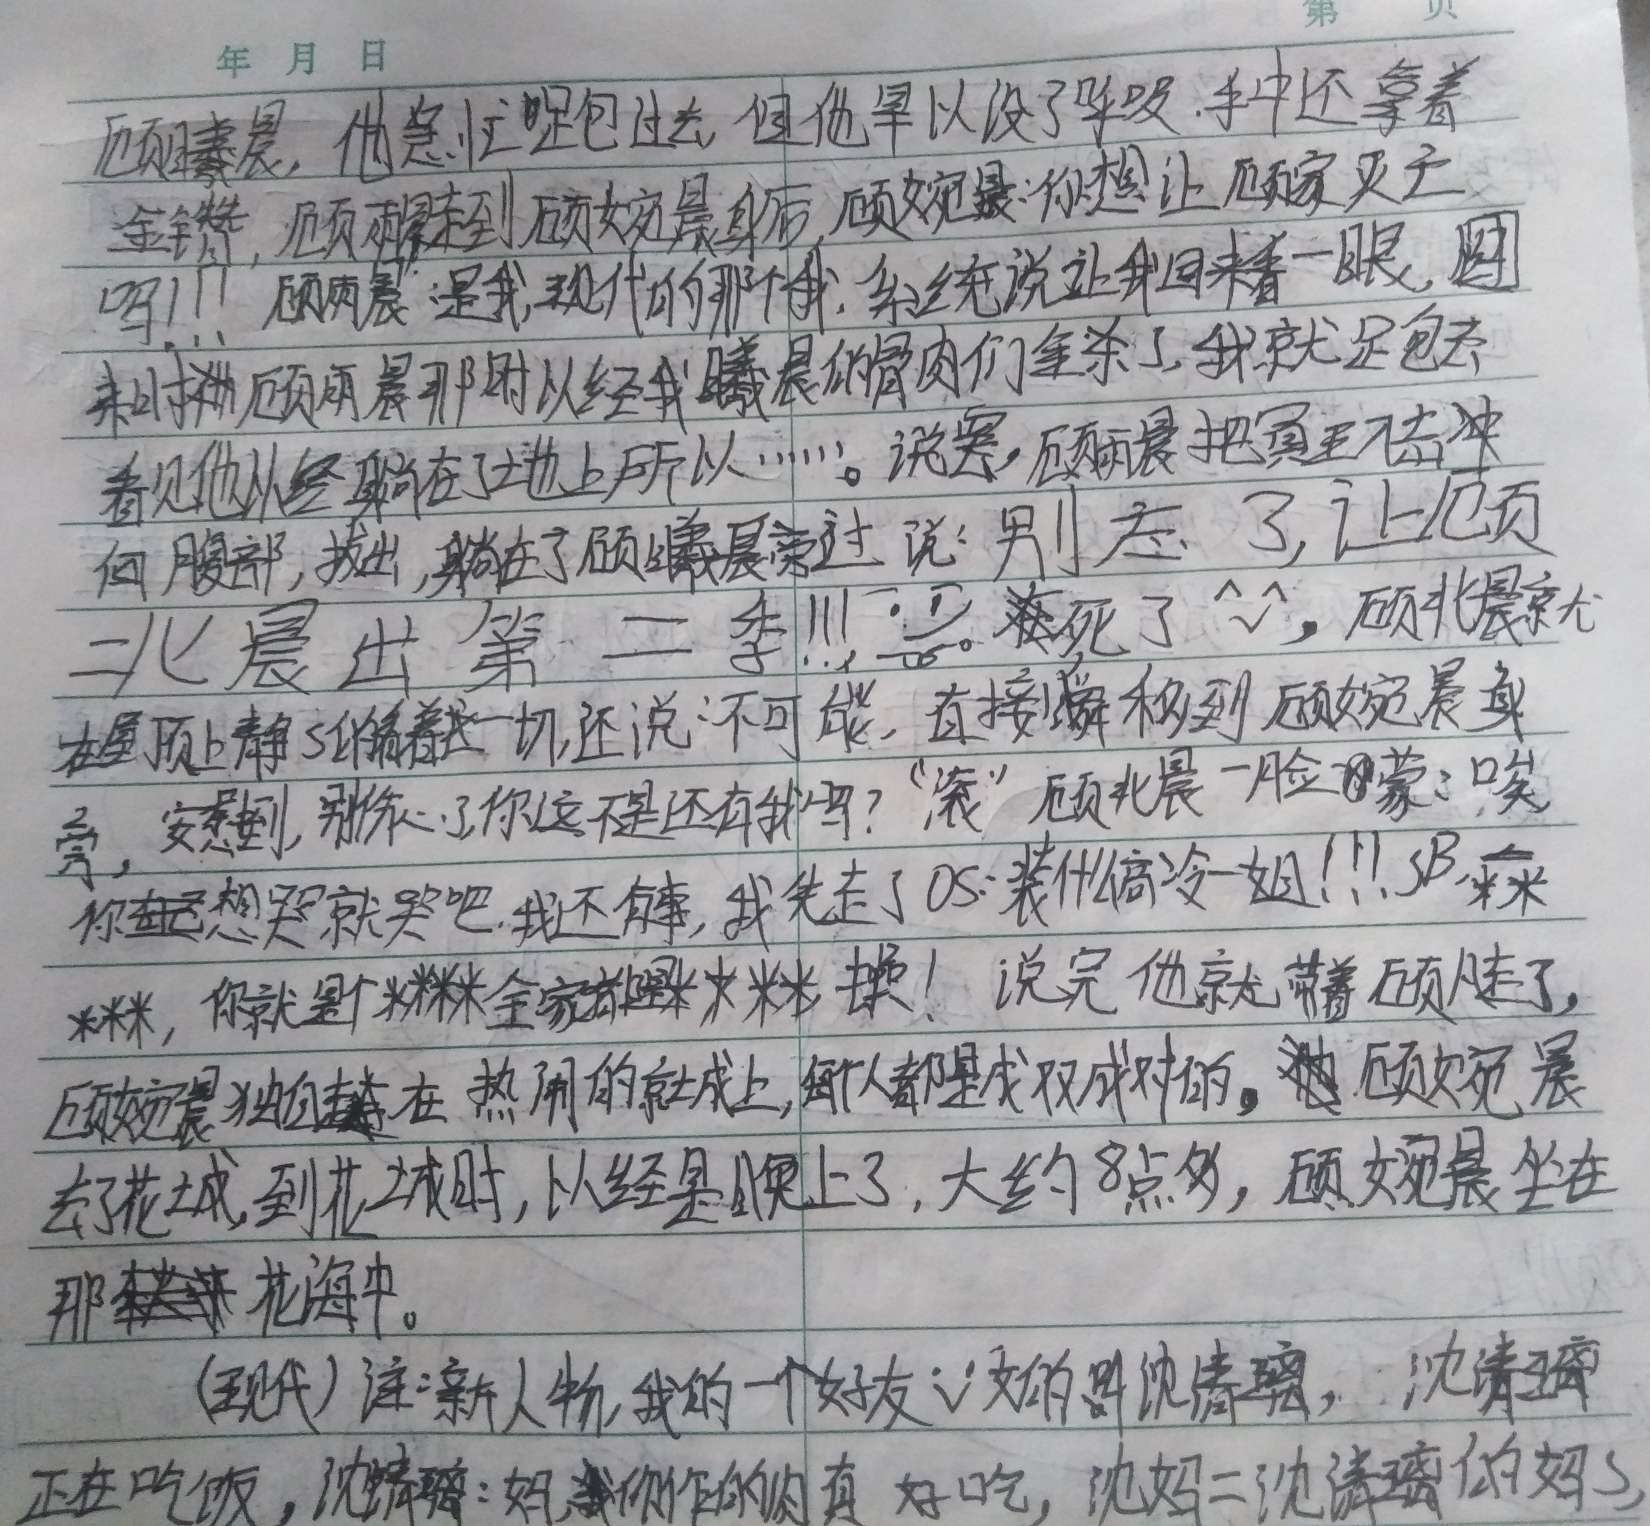 第 页
年 月 日
顾曦晨，他急忙跑过去，但他早以没了呼吸.手中还拿着
金钗，顾雨晨来到顾婉晨身后，顾婉晨：你想让顾家灭亡
吗！！！顾雨晨：是我，现代的那个我.系统说让我回来看一眼，回
来时顾雨晨那时以经我曦晨的骨肉们全杀了，我就跑去
看见他以经躺在了地上所以……。说罢，顾雨晨把冲
向腹部，拔出，躺在了顾曦晨旁边说：别杰了，让顾
北晨出第二季！！！死了^ ^，顾北晨就
在屋顶上静静看着这一切，还说：不可能.直接瞬移到顾婉晨身
旁，安慰到，别伤心了你这不是还有我吗？“滚”顾北晨一脸蒙：唉
你想哭就哭吧.我还有事，我先走了OS：装什么高冷一姐！！！SB.
米米米，你就是个米米米米全家都是米米米米！说完他就带着顾走了，
顾婉晨独自在热闹的京城上，每个人都是成双成对的。顾婉晨
去了花城，到花城时，以经是晚上了，大约8点多，顾婉晨坐在
那花海中。
（现代）注：新人物，我的一个好友女的叫沈清璃，沈清璃
正在吃饭，沈清璃：妈，你作的肉真好吃，沈妈=沈清璃的妈妈，